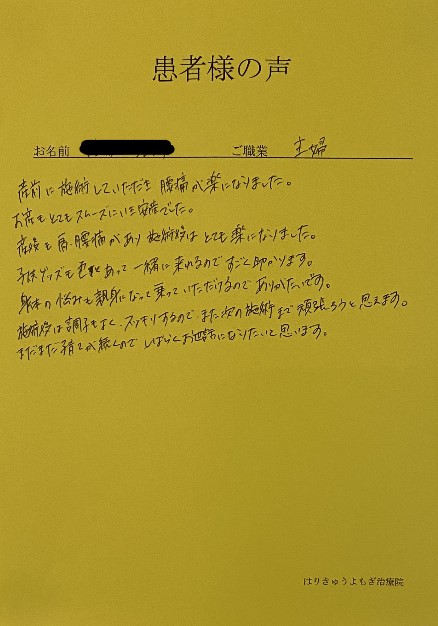 患者様の声
お名前 ご職業 主婦
産前に施術していただき 腰痛が楽になりました。
お産もとてもスムーズにいき安産でした。
産後も肩・腰痛があり 施術後は とても楽になりました。
子供グッズも色々あって 一緒に来れるので すごく助かります。
身体の悩みも親身になって乗っていただけるので ありがたいです。
施術後は調子もよく、スッキリするので また次の施術まで 頑張ろうと思えます。
まだまだ子育てが続くので しばらくお世話になりたいと思います。
はりきゅうよもぎ治療院